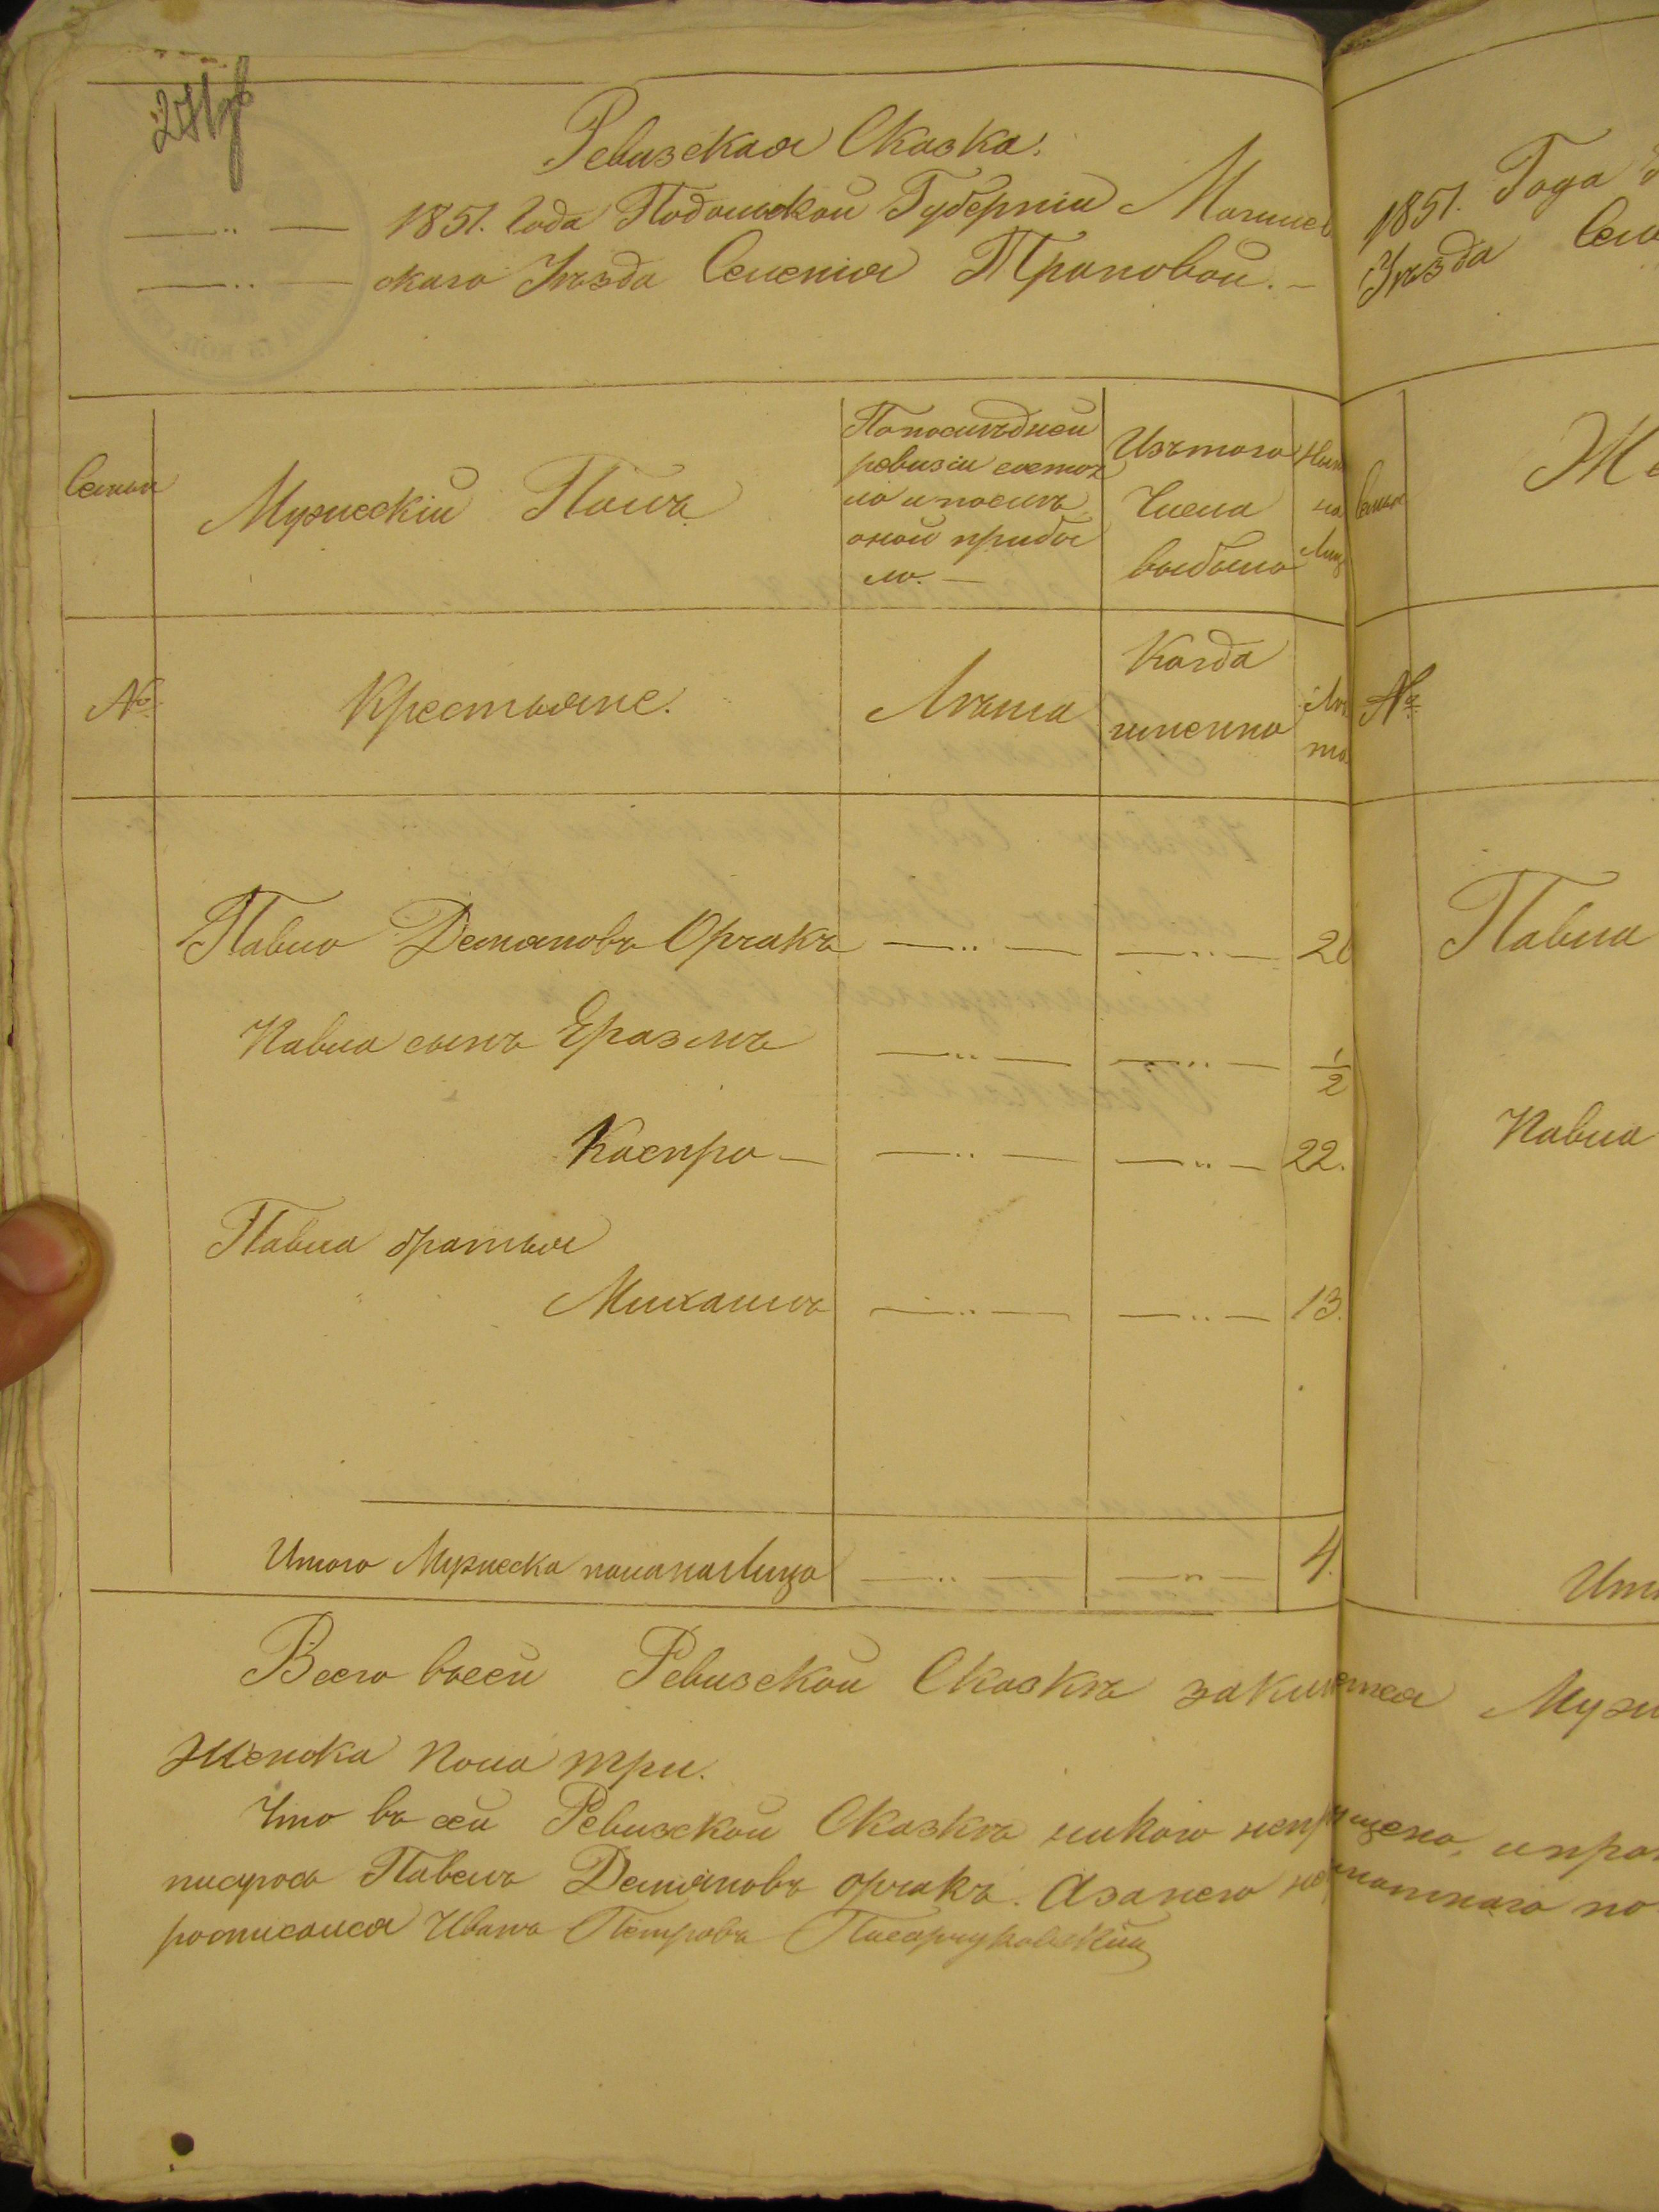 Ревизская Сказка.
1851. Года Подольской Губерніи Могилев
скаго Уѣзда Селенія Траповой. —
1851. Года
Уѣзда Сел
Семьи
Мужескій Полъ
По послѣдней
ревизіи состоя
ло и послѣ
оной прибы
ло. —
Изътого
Числа
выбыло
Нын
на
Лиц
Семьи
Же
№
Крестьяне.
Лѣта
Когда
именно
Лѣ
та
№
Павло Демяновъ Орчакъ — " — — " — 20
Павла
Павла сынъ Еразмъ — " — — " — 1/2
Каспро — — " — — " — 22.
Павла
Павла братья
Михаилъ — " — — " — 13.
Итого Мужеска поланалицо — " — — " — 4.
Ит
Всего всей Ревизской Сказкѣ заключается Муж
женска пола три.
Что въ сей Ревизской Сказкѣ никого непропущено, ипро
Павелъ Демяновъ Орчакъ. Азанего неграмотнаго по
росписался Иванъ Петровъ Писарчуковскій